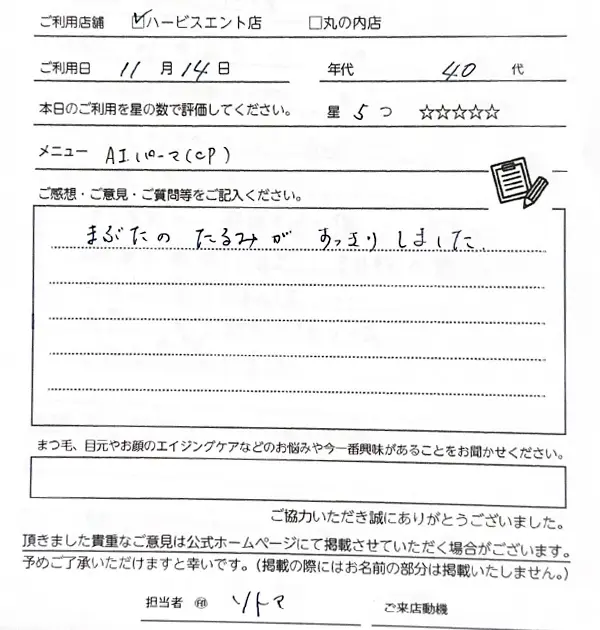 ご利用店舗 ☑ハービスエント店 □丸の内店
ご利用日 11月14日 年代 40代
本日のご利用を星の数で評価してください。 星 5つ ☆☆☆☆☆
メニュー AIパーマ(CP)
ご感想・ご意見・ご質問等をご記入ください。
まぶたの たるみが すっきり しました
まつ毛、目元やお顔のエイジングケアなどのお悩みや今一番興味があることをお聞かせください。
ご協力いただき誠にありがとうございました。
頂きました貴重なご意見は公式ホームページにて掲載させていただく場合がございます。
予めご了承いただけますと幸いです。(掲載の際にはお名前の部分は掲載いたしません。)
担当者 ㊞ ソトマ ご来店動機